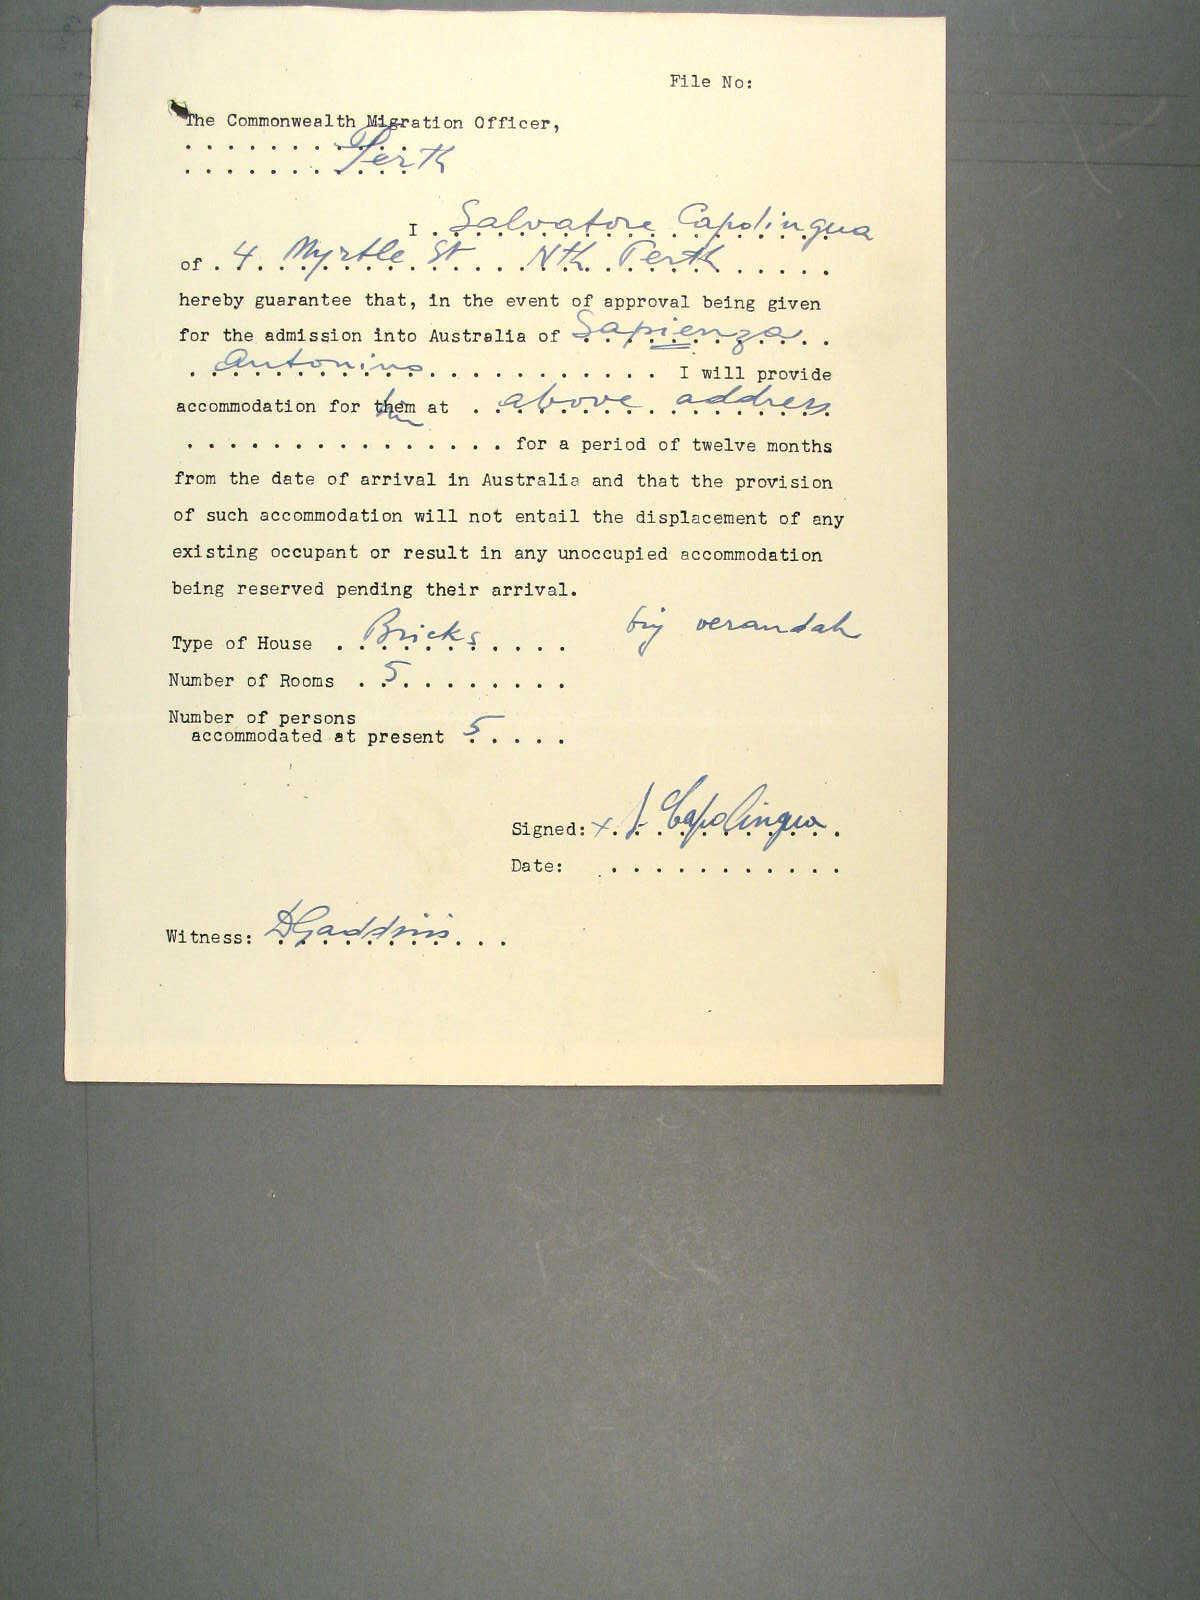 File No:
The Commonwealth Migration Officer,
Perth
I Salvatore Capolingua
of 4 Myrtle St Nth Perth
hereby guarantee that, in the event of approval being given
for the admission into Australia of Sapienza
Antonino I will provide
accommodation for them him at above address
for a period of twelve months
from the date of arrival in Australia and that the provision
of such accommodation will not entail the displacement of any
existing occupant or result in any unoccupied accommodation
being reserved pending their arrival.
big verandah
Type of House Bricks
Number of Rooms 5
Number of persons
accommodated at present 5
Signed: x S Capolingua
Date:
Witness: